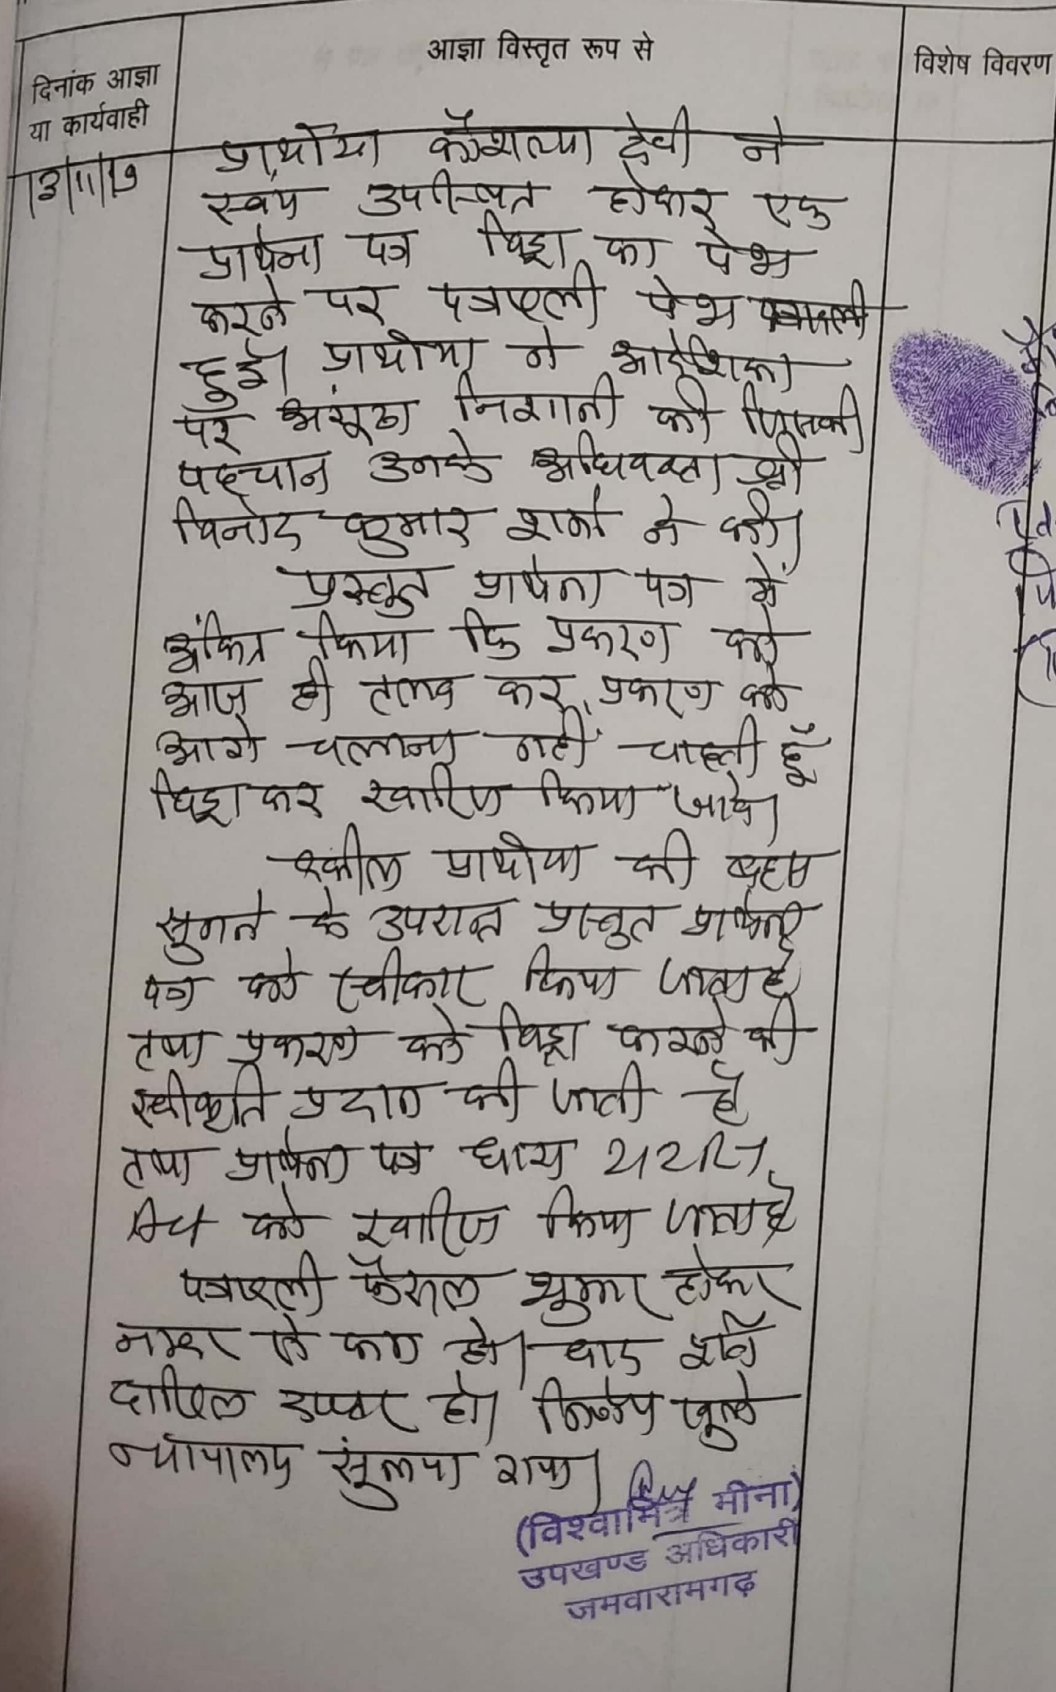 दिनांक आज्ञा
या कार्यवाही
आज्ञा विस्तृत रूप से
विशेष विवरण
13/11/19
प्रार्थीया कौशल्या देवी ने
स्वयं उपस्थित होकर एक
प्रार्थना पत्र विड्रा का पेश
करने पर पत्रावली पेश
हुई। प्रार्थीया ने आदेशिका
पर अंगूठा निशानी की जिसकी
पहचान उनके अधिवक्ता श्री
विनोद कुमार शर्मा ने की।
प्रस्तुत प्रार्थना पत्र में
अंकित किया कि प्रकरण को
आज ही तलब कर प्रकरण को
आगे चलाना नहीं चाहती हूँ
विड्रा कर खारिज किया जावे।
वकील प्रार्थीया की बहस
सुनने के उपरान्त प्रस्तुत प्रार्थना
पत्र को स्वीकार किया जाता है
तथा प्रकरण को विड्रा करने की
स्वीकृति प्रदान की जाती है
तथा प्रार्थना पत्र धारा 212
को खारिज किया जाता है
पत्रावली फैसल शुमार होकर
नम्बर से कम हो। बाद
दाखिल दफ्तर हो। निर्णय खुले
न्यायालय में सुनाया गया।
(विश्वामित्र मीना)
उपखण्ड अधिकारी
जमवारामगढ़